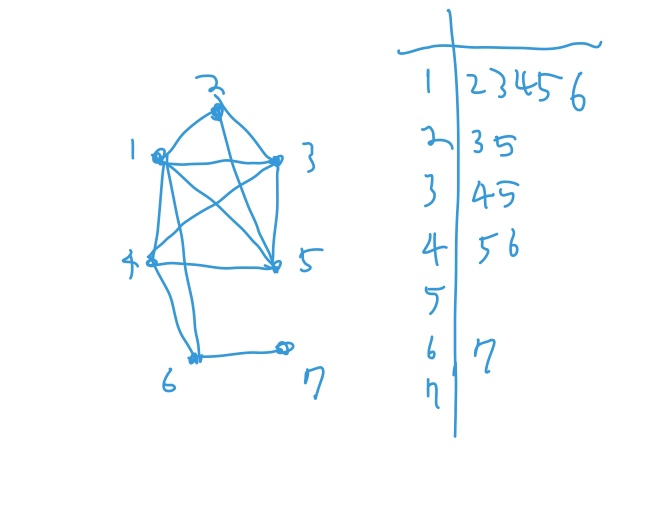 2
1
3
4
5
6
7
1 2 3 4 5 6
2 3 5
3 4 5
4 5 6
5
6 7
7